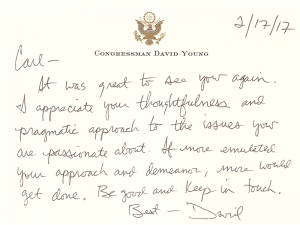 2/17/17
CONGRESSMAN DAVID YOUNG
Carl-
It was great to see you again.
I appreciate your thoughtfulness and
pragmatic approach to the issues you
are passionate about. If more emulated
your approach and demeanor, more would
get done. Be good and keep in touch.
Best - David